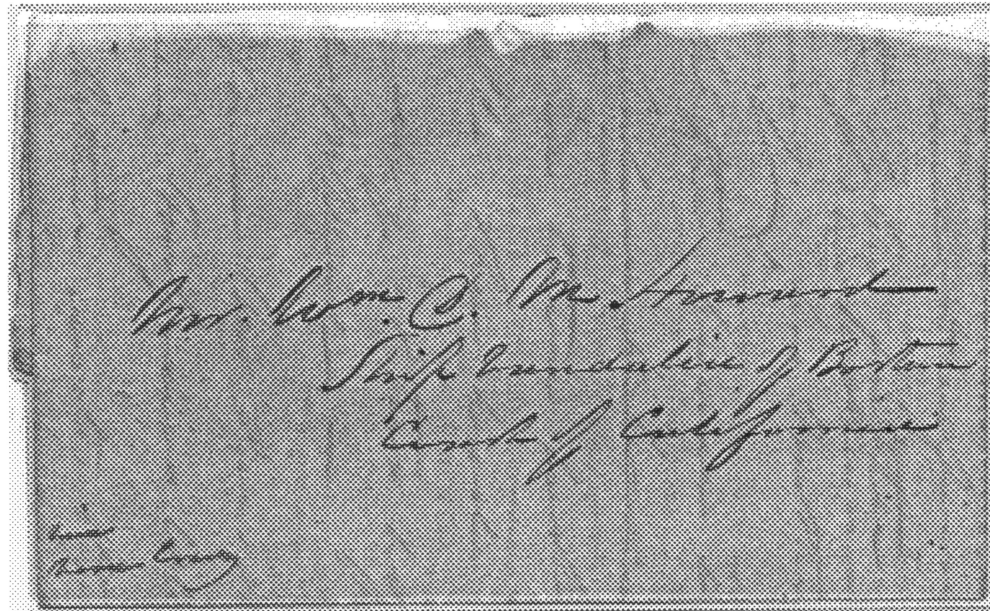 Mr. Wm. C. M. Howard
Ship Vandalia of Boston
Coast of California